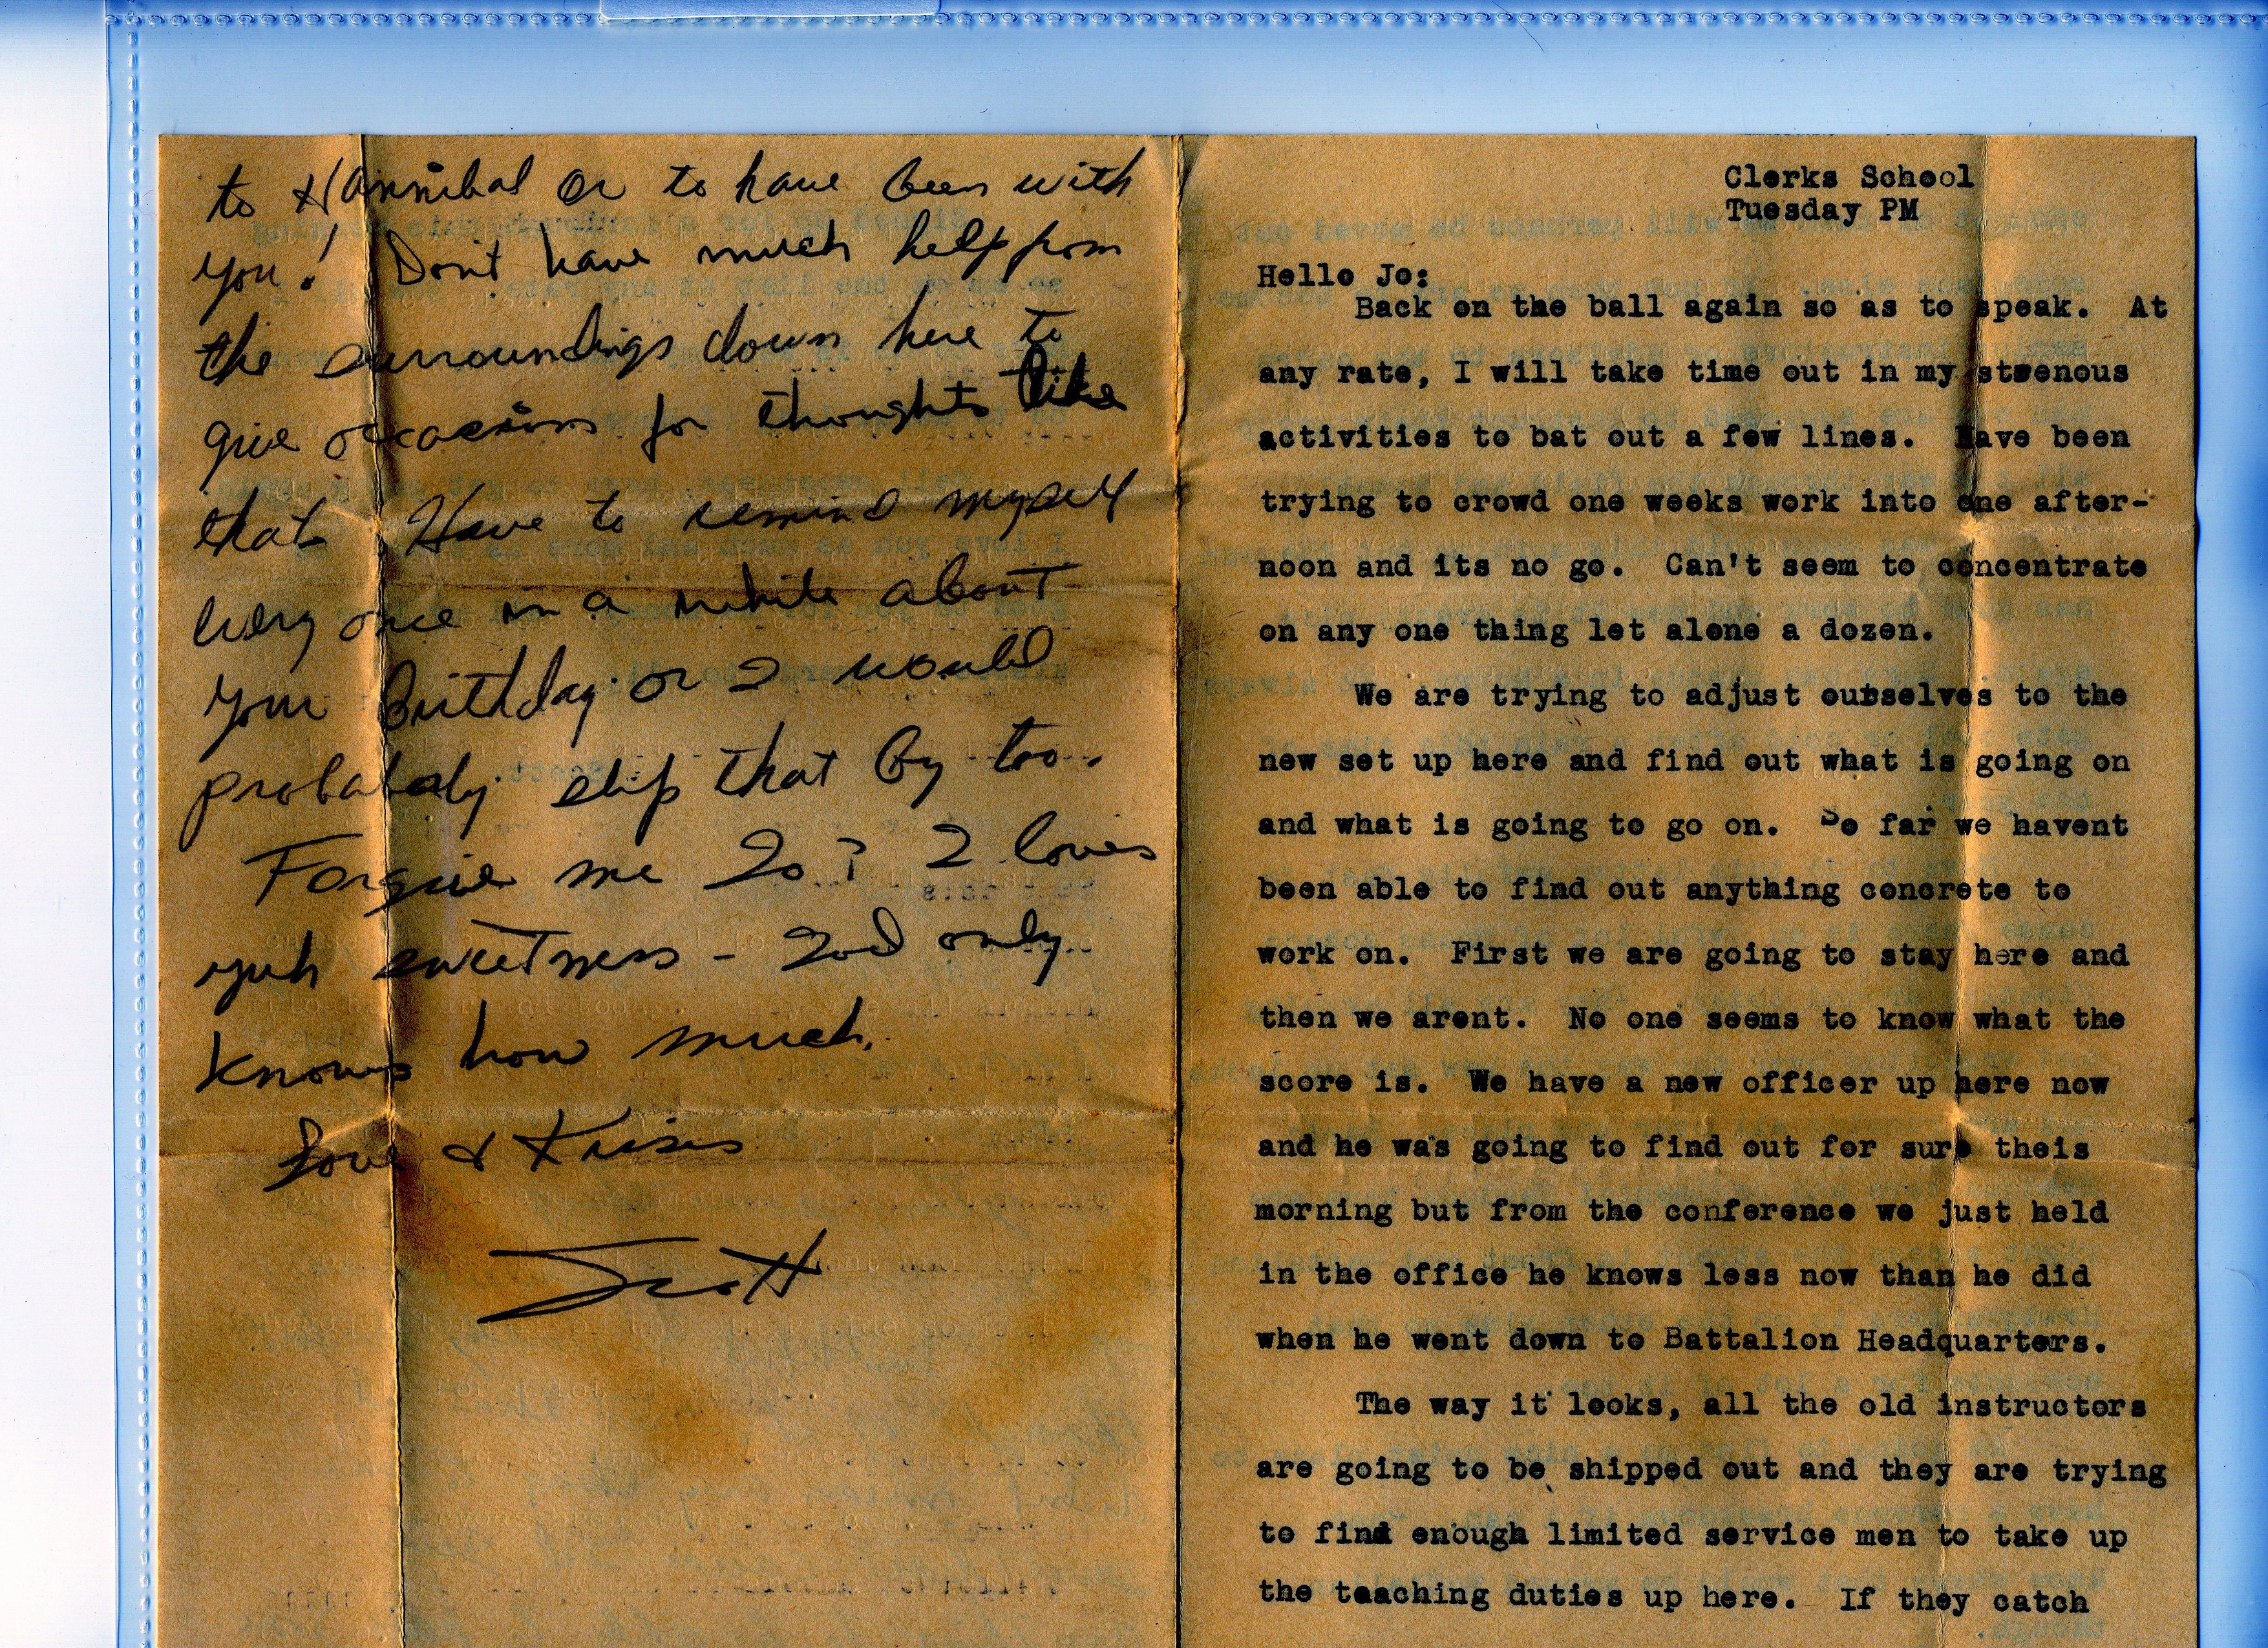 to Hannibal or to have been with
you! Dont have much help from
the surroundings down here to
give occasions for thoughts like
that. Have to remind myself
every once in a while about
your Birthday or I would
probabaly slip that by too.
Forgive me Jo? I loves
yuh sweetness - God only
knows how much.
Love & Kisses
Scott
Clerks School
Tuesday PM
Hello Jo:
Back on the ball again so as to speak. At
any rate, I will take time out in my strenous
activities to bat out a few lines. Have been
trying to crowd one weeks work into one after-
noon and its no go. Can't seem to concentrate
on any one thing let alone a dozen.
We are trying to adjust ourselves to the
new set up here and find out what is going on
and what is going to go on. So far we havent
been able to find out anything concrete to
work on. First we are going to stay here and
then we arent. No one seems to know what the
score is. We have a new officer up here now
and he was going to find out for sure theis
morning but from the conference we just held
in the office he knows less now than he did
when he went down to Battalion Headquarters.
The way it looks, all the old instructors
are going to be shipped out and they are trying
to find enough limited service men to take up
the teaching duties up here. If they catch